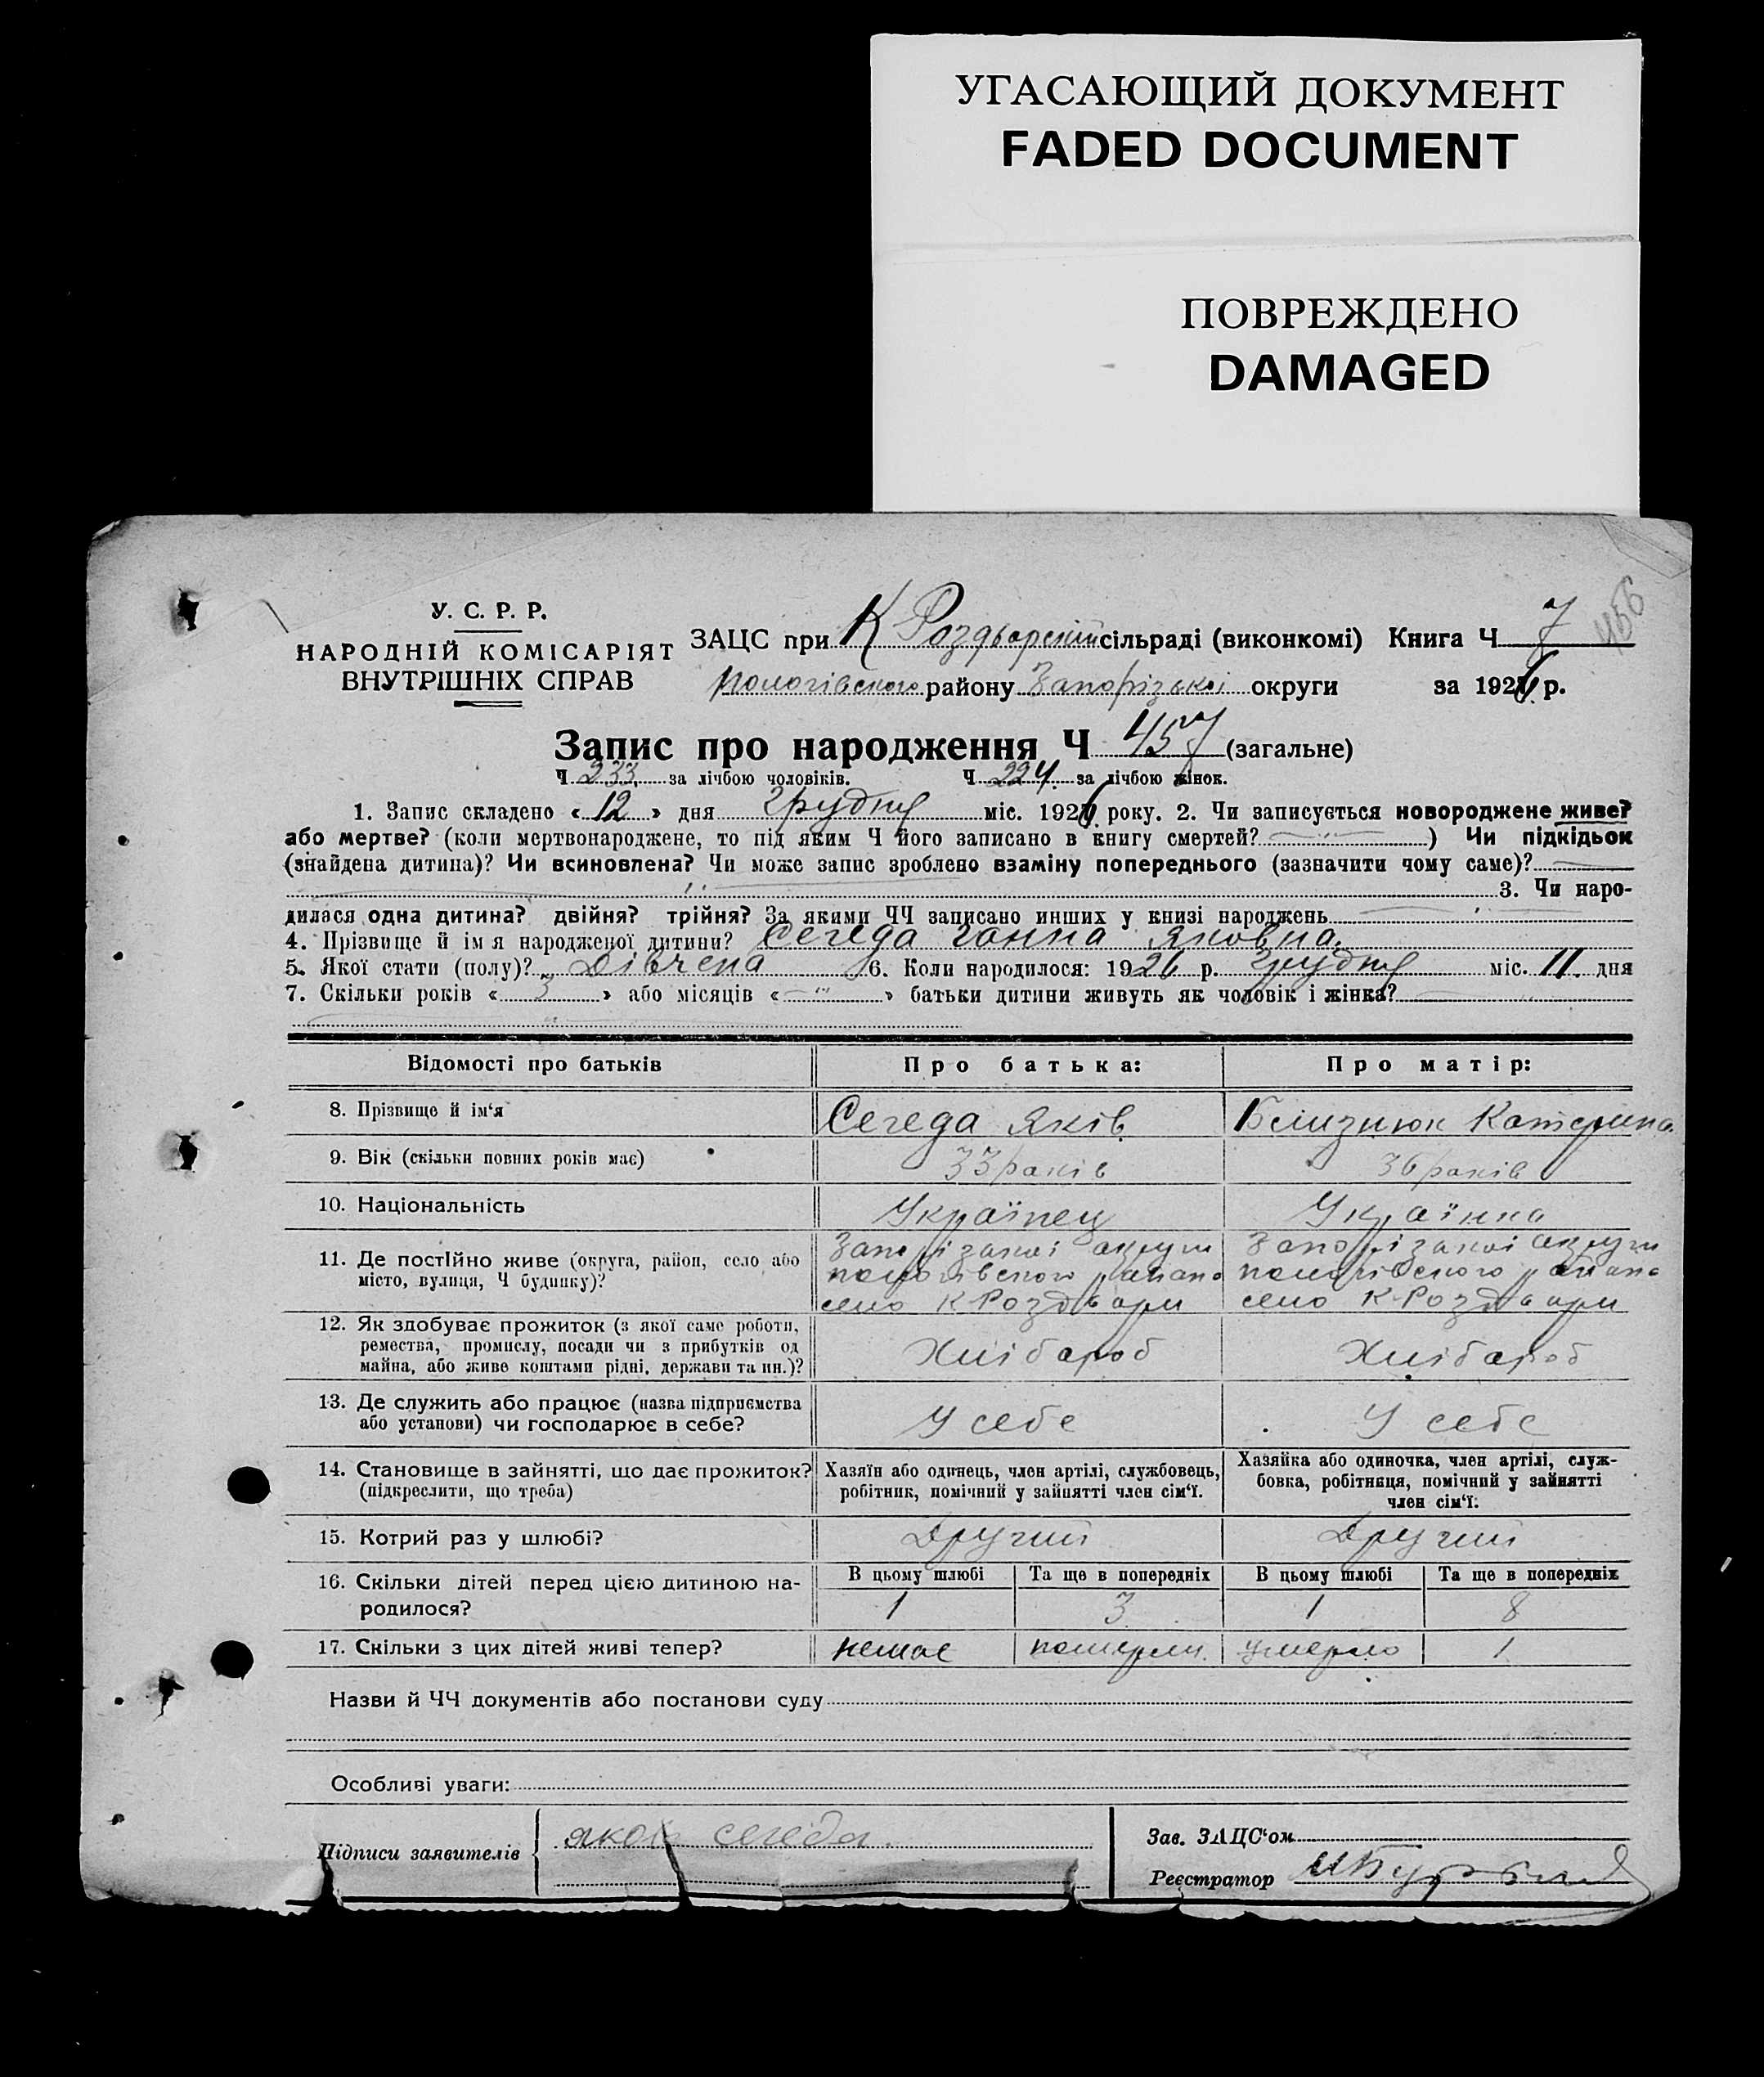 УГАСАЮЩИЙ ДОКУМЕНТ
FADED DOCUMENT
ПОВРЕЖДЕНО
DAMAGED
456
У. С. Р. Р.
НАРОДНІЙ КОМІСАРІЯТ
ВНУТРІШНІХ СПРАВ
ЗАЦС при К Роздорській сільраді (виконкомі) Книга Ч 7
Пологівского району Запорізькоі округи за 1926 р.
Запис про народження Ч 457 (загальне)
Ч 233 за лічбою чоловіків. Ч 224 за лічбою жінок.
1. Запис складено « 12 » дня грудня міс. 1926 року. 2. Чи записується новороджене живе?
або мертве? (коли мертвонароджене, то під яким Ч його записано в книгу смертей? ) Чи підкідьок
(знайдена дитина)? Чи всиновлена? Чи може запис зроблено взаміну попереднього (зазначити чому саме)?
3. Чи наро-
дилася одна дитина? двійня? трійня? За якими ЧЧ записано инших у книзі народжень
4. Прізвище й ім я народженої дитини? Сегеда Ганна Яковна
5. Якої стати (полу)? Дівчена 6. Коли народилося: 1926 р. Грудня міс. 11. дня
7. Скільки років « 3 » або місяців « » батьки дитини живуть як чоловік і жінка?
Відомості про батьків Про батька: Про матір:
8. Прізвище й ім‘я Сегеда Яків Катерина
9. Вік (скільки повних років має) 33 років 36 років
10. Національність Українец Українка
11. Де постійно живе (округа, район, село або Запорізакоі округи Запорізакоі округи
місто, вулиця, Ч будинку)? пологівского району пологівского району
село К Роздори село К Роздори
12. Як здобуває прожиток (з якої саме роботи,
ремества, промислу, посади чи з прибутків од
майна, або живе коштами рідні, держави та ин.)? Хлібароб Хлібароб
13. Де служить або працює (назва підприємства
або установи) чи господарює в себе? У себе У себе
14. Становище в зайнятті, що дає прожиток? Хазяїн або одинець, член артілі, службовець, Хазяйка або одиночка, член артілі, служ-
(підкреслити, що треба) робітник, помічний у зайнятті член сім‘ї. бовка, робітниця, помічний у зайнятті
член сім‘ї.
15. Котрий раз у шлюбі? Другий Другий
16. Скільки дітей перед цією дитиною на- В цьому шлюбі Та ще в попередніх В цьому шлюбі Та ще в попередніх
родилося? 1 3 1 8
17. Скільки з цих дітей живі тепер? немає померли умерло 1
Назви й ЧЧ документів або постанови суду
Особливі уваги:
Підписи заявителів сегеда
Зав. ЗАЦС‘ом
Реєстратор